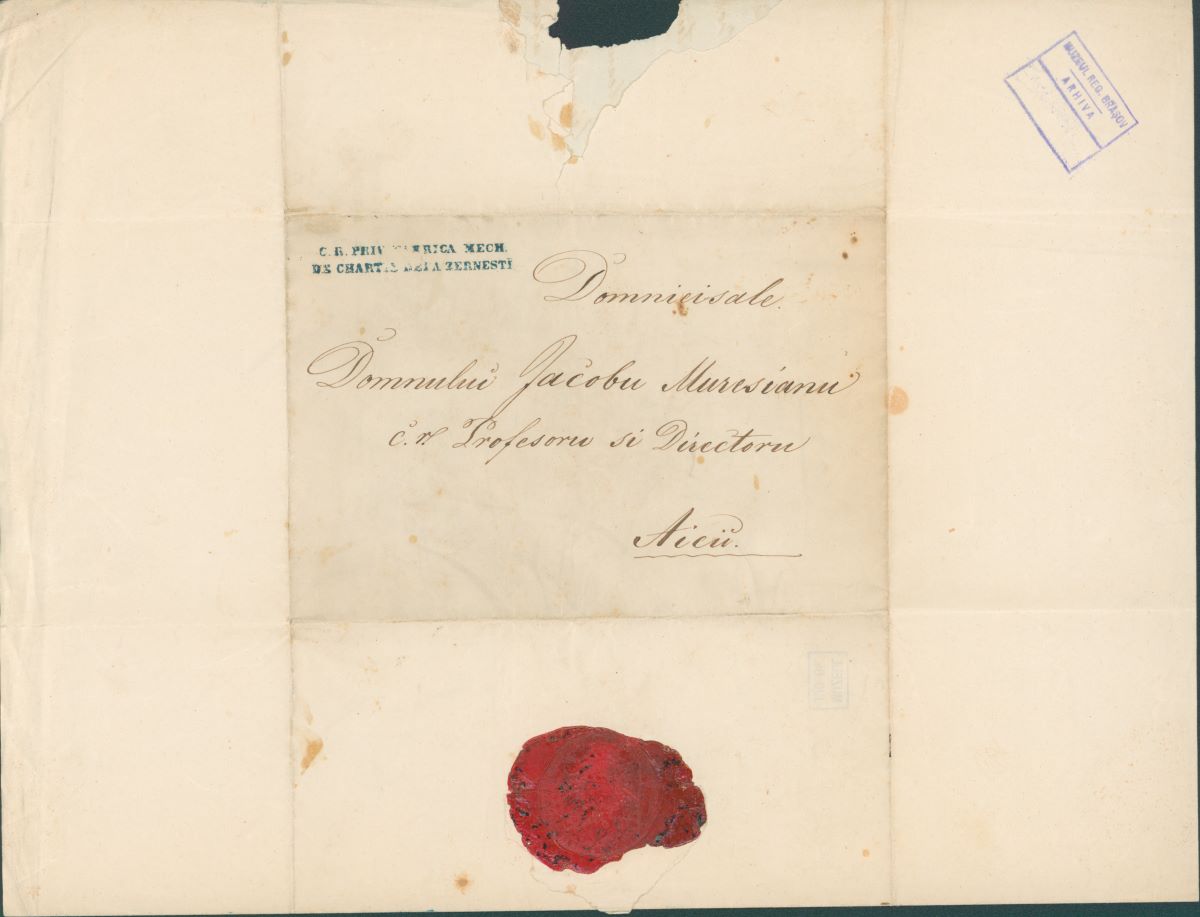 C. R. PRIV. FABRICA MECH.
DE CHARTIA DELA ZERNESTI
Domnieisale.
Domnului Jacobu Muresianu
c. r. Profesoru si Directoru
Aicii.
MUZEUL REG. BRAŞOV
ARHIVA